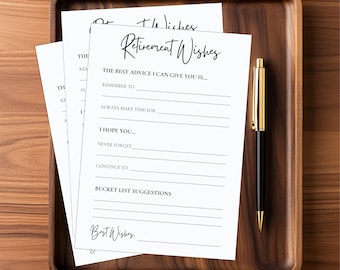 Retirement Wishes
THE BEST ADVICE I CAN GIVE YOU IS...
REMEMBER TO
ALWAYS MAKE TIME FOR
I HOPE YOU...
NEVER FORGET
CONTINUE TO
BUCKET LIST SUGGESTIONS
Best Wishes,